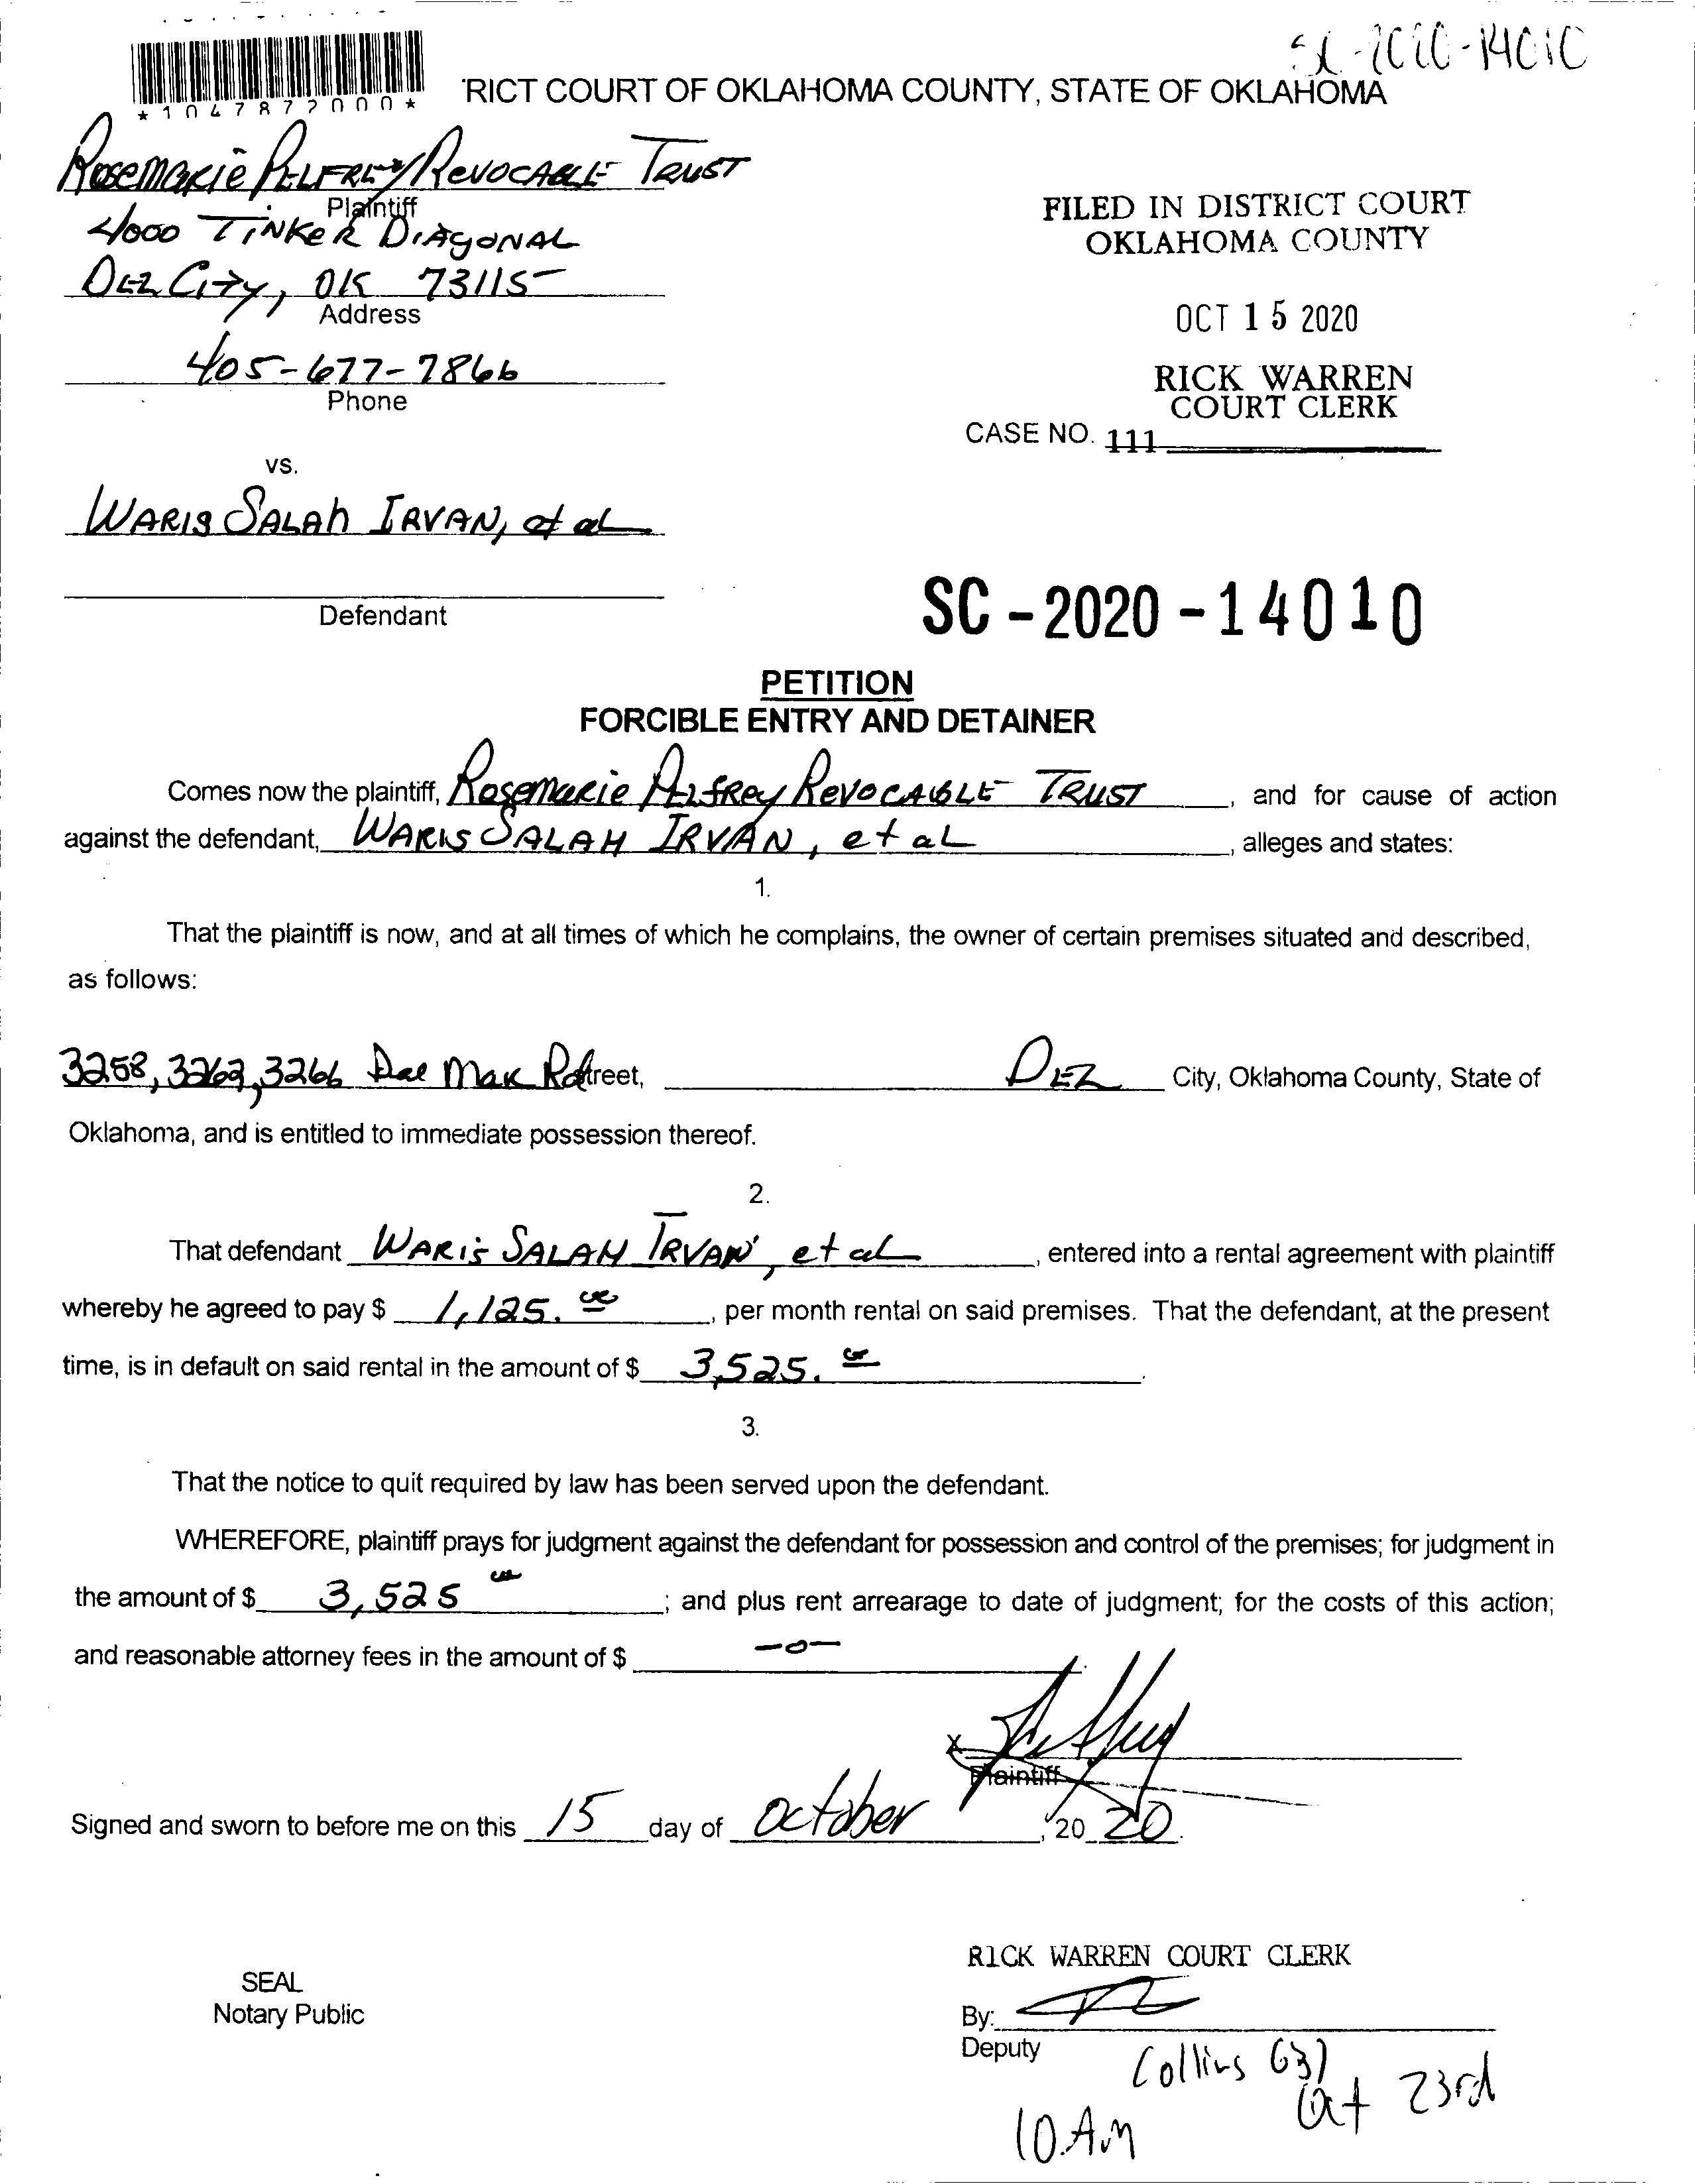 SC-2020-14010
*1047872000*
'RICT COURT OF OKLAHOMA COUNTY, STATE OF OKLAHOMA
Rosemarie Pelfrey Revocable Trust
Plaintiff
4000 Tinker Diagonal
Del City, OK 73115
Address
405-677-7866
Phone
FILED IN DISTRICT COURT
OKLAHOMA COUNTY
OCT 15 2020
RICK WARREN
COURT CLERK
CASE NO. 111
vs.
Waris Salah Irvan, et al
Defendant
SC-2020-14010
PETITION
FORCIBLE ENTRY AND DETAINER
Comes now the plaintiff, Rosemarie Pelfrey Revocable Trust, and for cause of action
against the defendant, Waris Salah Irvan, et al, alleges and states:
1.
That the plaintiff is now, and at all times of which he complains, the owner of certain premises situated and described,
as follows:
3258, 3262, 3266 Del Mar Rd Street, Del City, Oklahoma County, State of
Oklahoma, and is entitled to immediate possession thereof.
2.
That defendant Waris Salah Irvan, et al, entered into a rental agreement with plaintiff
whereby he agreed to pay $ 1,125.00, per month rental on said premises. That the defendant, at the present
time, is in default on said rental in the amount of $ 3,525.00.
3.
That the notice to quit required by law has been served upon the defendant.
WHEREFORE, plaintiff prays for judgment against the defendant for possession and control of the premises; for judgment in
the amount of $ 3,525 00; and plus rent arrearage to date of judgment; for the costs of this action;
and reasonable attorney fees in the amount of $ -0-
X
Plaintiff
Signed and sworn to before me on this 15 day of October, 20 20.
SEAL
Notary Public
RICK WARREN COURT CLERK
By:
Deputy
Collins
at 23rd
10 AM